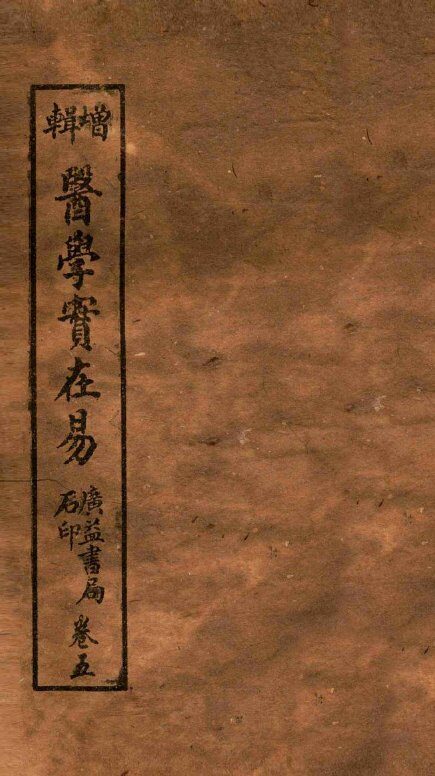 增輯
醫學實在易
廣益書局
石印
卷五